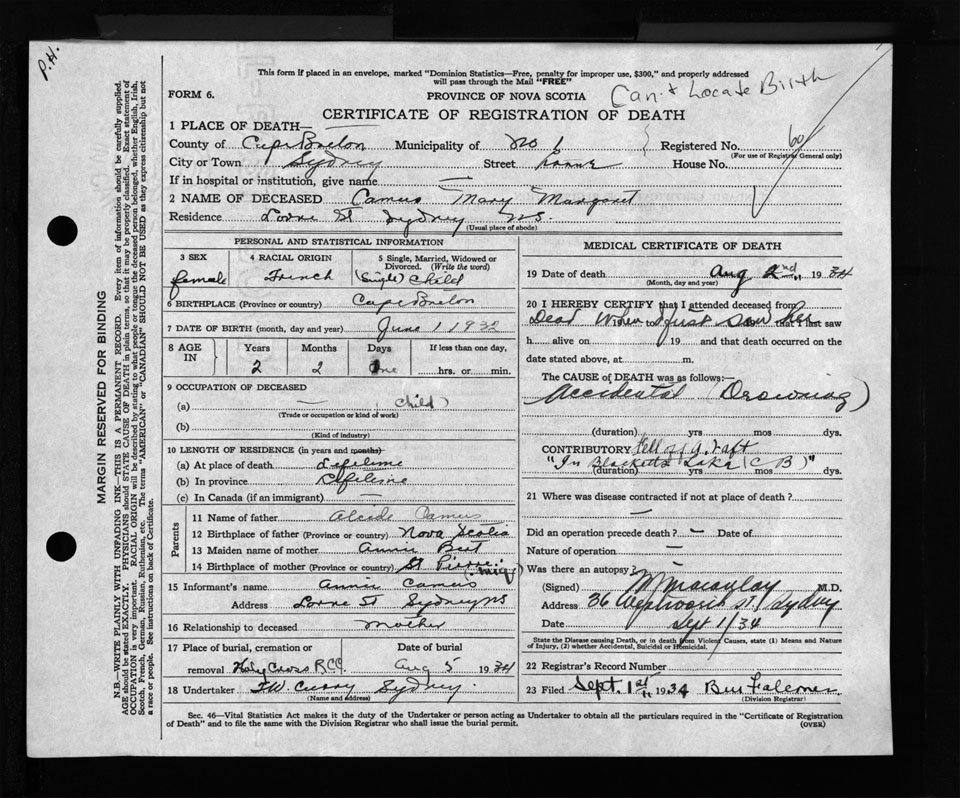 P.H.
This form if placed in an envelope, marked "Dominion Statistics—Free, penalty for improper use, $300," and properly addressed
will pass through the Mail "FREE"
Can't Locate Birth
FORM 6.
PROVINCE OF NOVA SCOTIA
CERTIFICATE OF REGISTRATION OF DEATH
1 PLACE OF DEATH—
County of Cape Breton Municipality of No 1 Registered No. 60
(For use of Registrar General only)
City or Town Sydney Street Lorne House No.
If in hospital or institution, give name —
2 NAME OF DECEASED Camus Mary Margaret
Residence Lorne St Sydney NS
(Usual place of abode)
PERSONAL AND STATISTICAL INFORMATION
3 SEX
female
4 RACIAL ORIGIN
French
5 Single, Married, Widowed or
Divorced. (Write the word)
(Single) Child
6 BIRTHPLACE (Province or country) Cape Breton
7 DATE OF BIRTH (month, day and year) June 1 1932
8 AGE IN
Years Months Days If less than one day,
2 2 One hrs. or min.
9 OCCUPATION OF DECEASED
(a) — (child)
(Trade or occupation or kind of work)
(b)
(Kind of industry)
10 LENGTH OF RESIDENCE (in years and months)
(a) At place of death Lifetime
(b) In province Lifetime
(c) In Canada (if an immigrant) —
Parents
11 Name of father Alcide Camus
12 Birthplace of father (Province or country) Nova Scotia
13 Maiden name of mother Annie
14 Birthplace of mother (Province or country) St Pierre (miq)
15 Informant's name Annie Camus
Address Lorne St Sydney NS
16 Relationship to deceased Mother
17 Place of burial, cremation or Date of burial
removal Holy Cross R.C.C. Aug 5 1934
18 Undertaker F.W. Curry Sydney
(Name and address)
MEDICAL CERTIFICATE OF DEATH
19 Date of death Aug 2nd 1934
(Month, day and year)
20 I HEREBY CERTIFY that I attended deceased from
Dead When I first saw her that I last saw
h alive on 19 and that death occurred on the
date stated above, at m.
The CAUSE of DEATH was as follows:—
Accidental Drowning)
(duration) yrs mos dys.
CONTRIBUTORY Fell off a raft
"In Blacketts Lake (C B)"
(duration) yrs mos dys.
21 Where was disease contracted if not at place of death?
—
Did an operation precede death? — Date of
Nature of operation —
Was there an autopsy? —
(Signed) Macaulay M.D.
Address 36 St Sydney
Date Sept 1/34
State the Disease causing Death, or in death from Violent Causes, state (1) Means and Nature
of Injury, (2) whether Accidental, Suicidal or Homicidal.
22 Registrar's Record Number
23 Filed Sept. 1st 1934 Falconer
(Division Registrar)
Sec. 46—Vital Statistics Act makes it the duty of the Undertaker or person acting as Undertaker to obtain all the particulars required in the "Certificate of Registration
of Death" and to file the same with the Division Registrar who shall issue the burial permit.
(OVER)
MARGIN RESERVED FOR BINDING
N.B.—WRITE PLAINLY WITH UNFADING INK—THIS IS A PERMANENT RECORD. Every item of information should be carefully supplied.
AGE should be stated EXACTLY. PHYSICIANS should STATE CAUSE OF DEATH in plain terms, so that it may be properly classified. Exact statement of
OCCUPATION is very important. RACIAL ORIGIN will be described by stating to what people or tongue the deceased person belonged, whether English, Irish,
Scotch, French, German, Russian, Ruthenian, etc. The terms "AMERICAN" or "CANADIAN" SHOULD NOT BE USED as they express citizenship but not
a race or people. See instructions on back of Certificate.